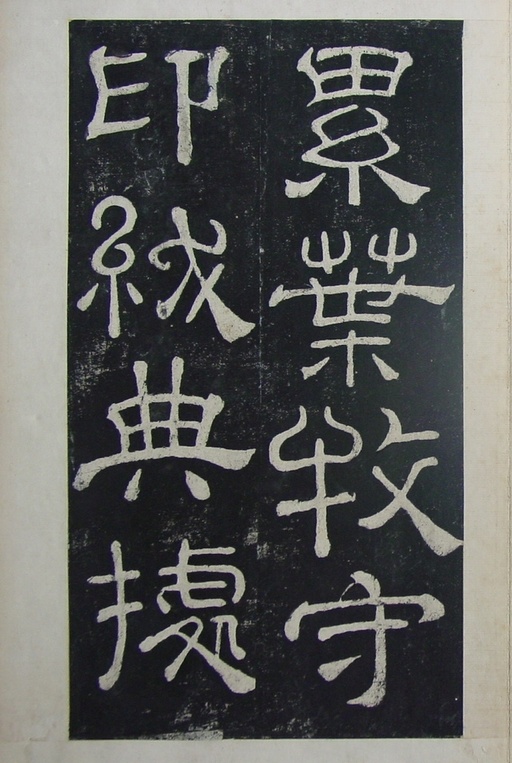 累葉牧守
印紱典㨿